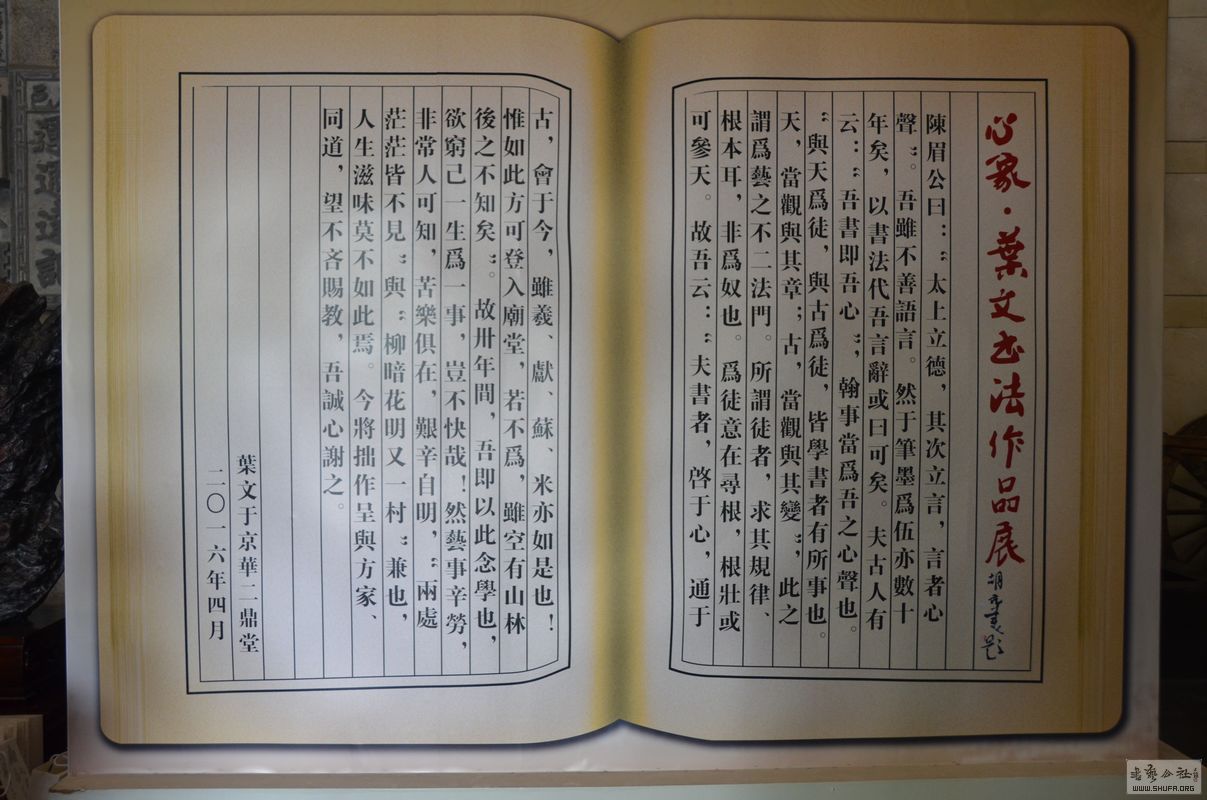 心象·葉文书法作品展
陳眉公曰：“太上立德，其次立言，言者心
聲”。吾雖不善語言。然于筆墨爲伍亦數十
年矣，以書法代吾言辭或曰可矣。夫古人有
云：“吾書即吾心”，翰事當爲吾之心聲也。
“與天爲徒，與古爲徒，皆學書者有所事也。
天，當觀與其章；古，當觀與其變”，此之
謂爲藝之不二法門。所謂徒者，求其規律、
根本耳，非爲奴也。爲徒意在尋根，根壯或
可參天。故吾云：“夫書者，啓于心，通于
古，會于今，雖羲、獻、蘇、米亦如是也！
惟如此方可登入廟堂，若不爲，雖空有山林
後之不知矣”。故卅年間，吾即以此念學也，
欲窮己一生爲一事，豈不快哉！然藝事辛勞，
非常人可知，苦樂俱在，艱辛自明，“兩處
茫茫皆不見”與“柳暗花明又一村”兼也，
人生滋味莫不如此焉。今將拙作呈與方家、
同道，望不吝賜教，吾誠心謝之。
葉文于京華二鼎堂
二〇一六年四月
WWW.SHUFA.ORG